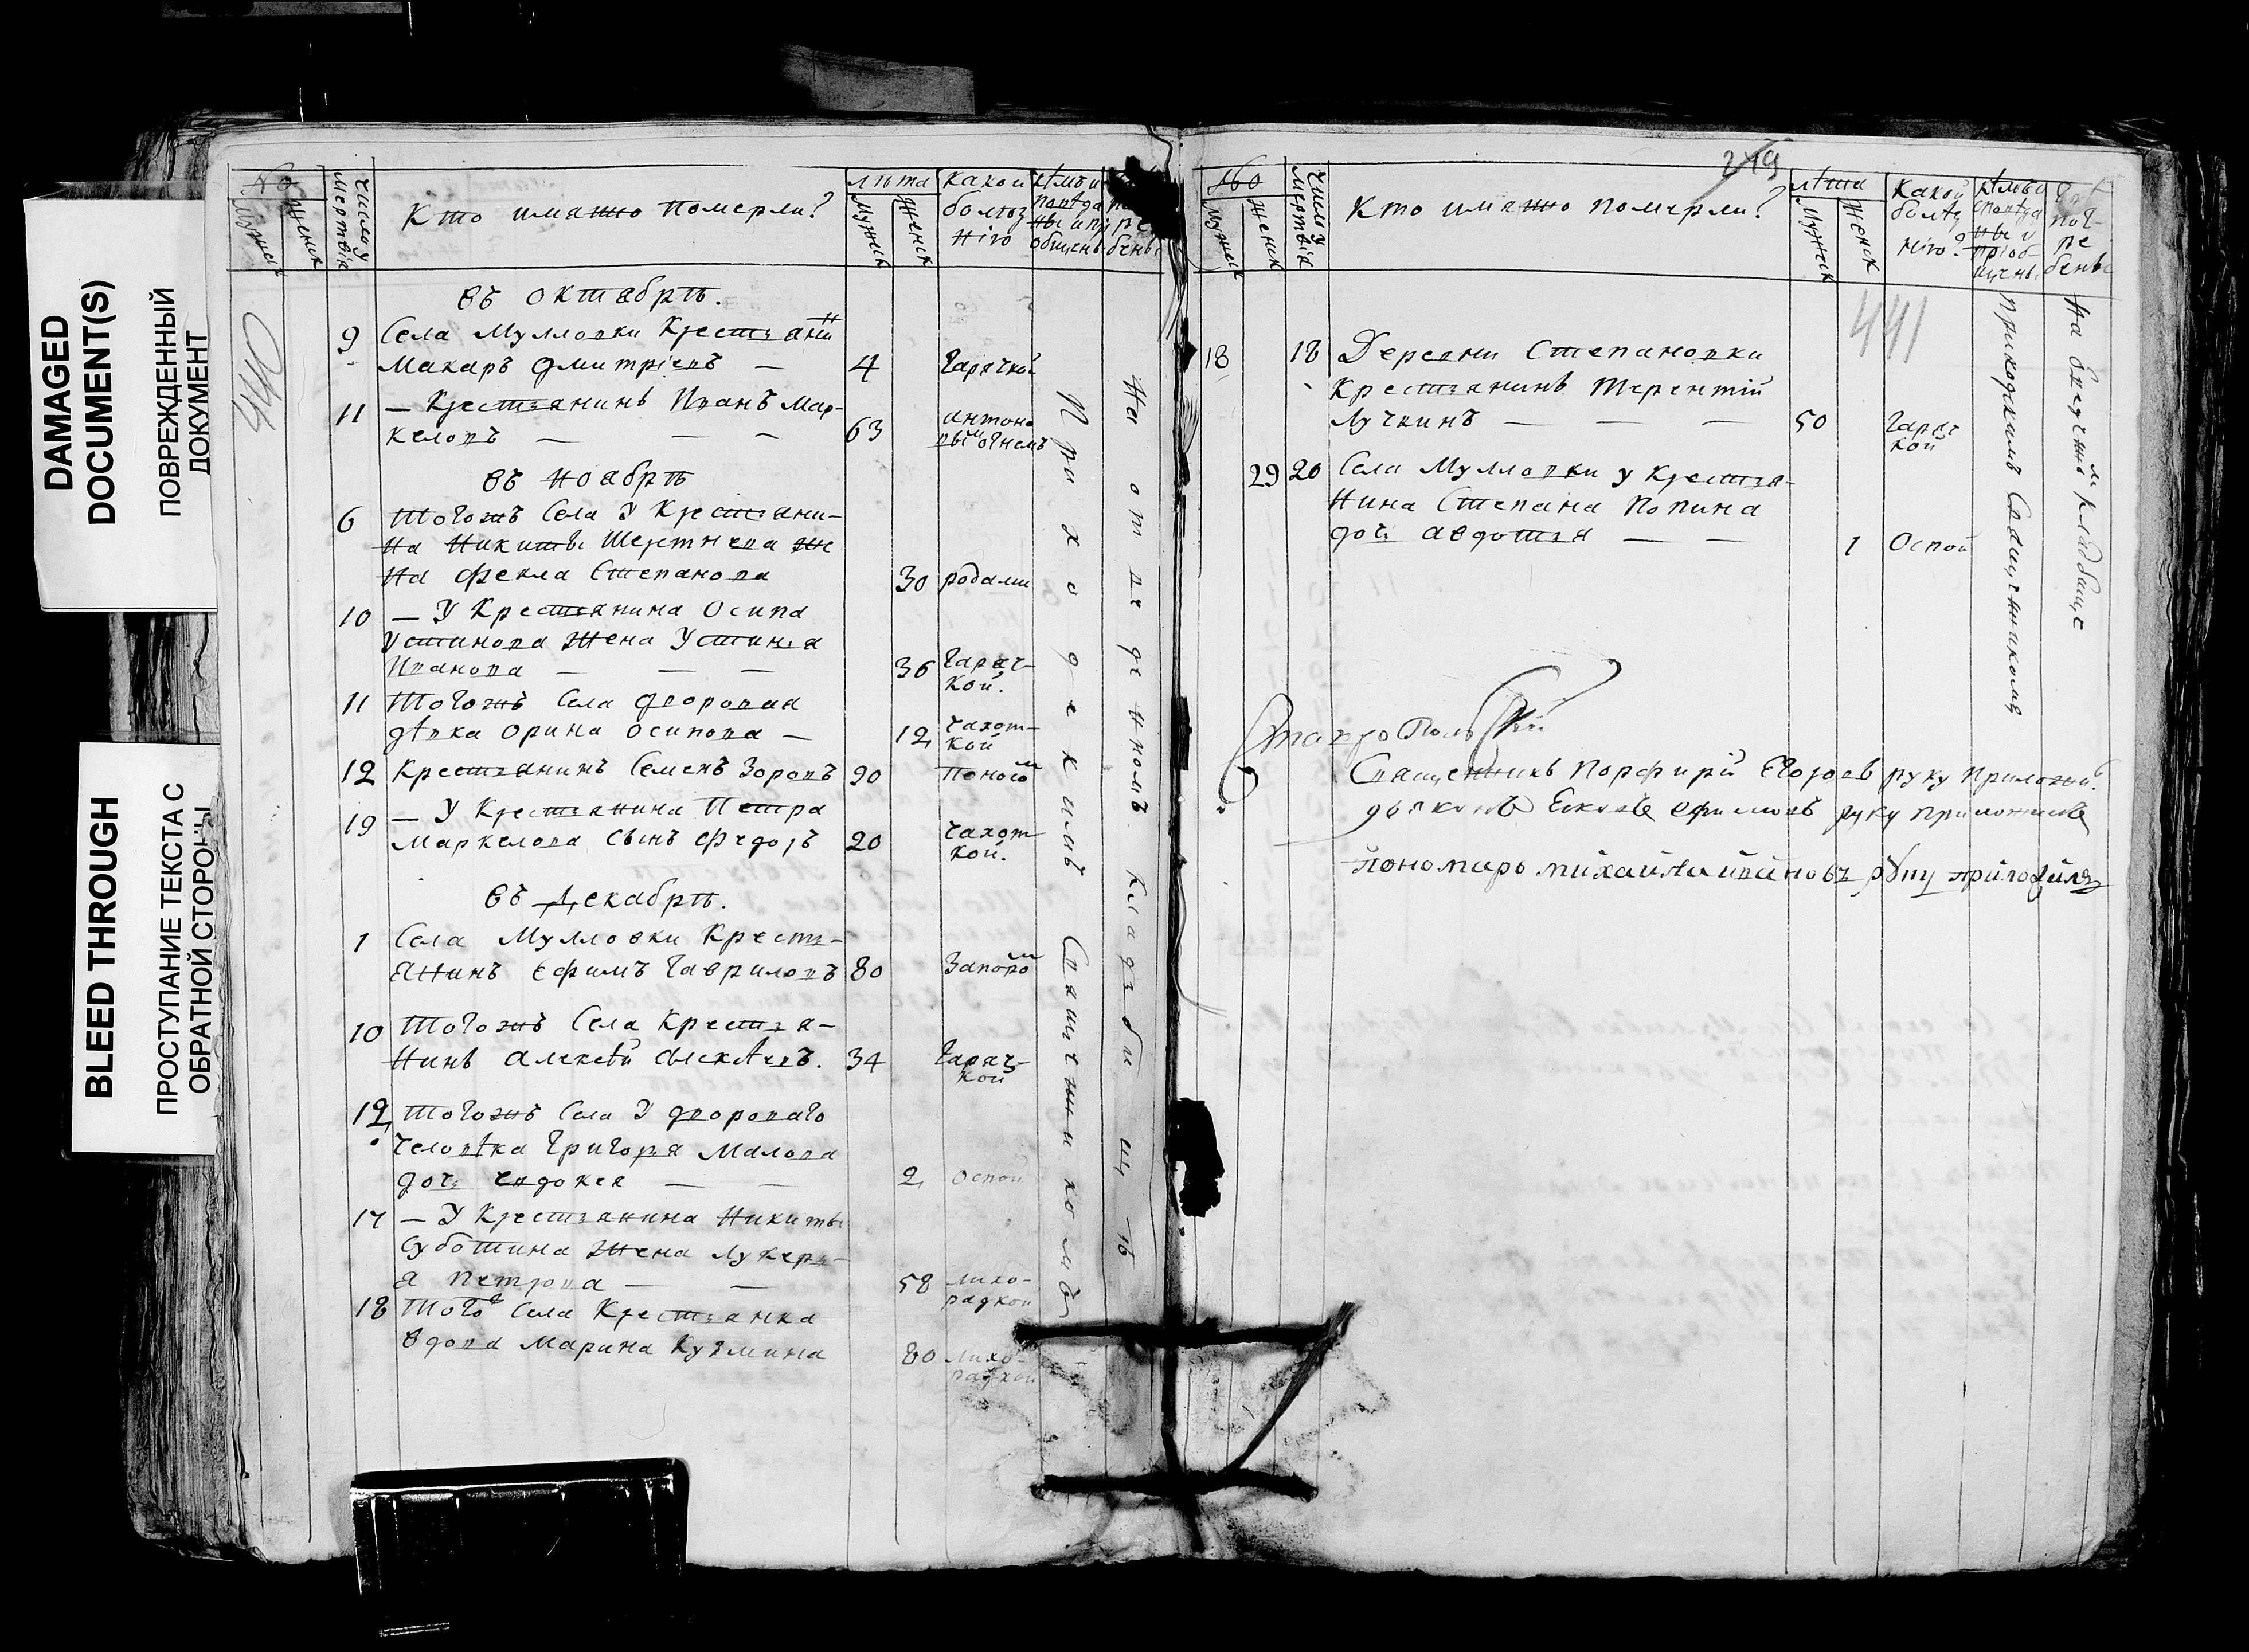 DAMAGED
DOCUMENT(S)
ПОВРЕЖДЕННЫЙ
ДОКУМЕНТ
BLEED THROUGH
ПРОСТУПАНИЕ ТЕКСТА С
ОБРАТНОЙ СТОРОНЫ
No
Мужск
Женск
Число у
мертвія
Кто имяно померли?
лѣта
Мужск
Женск
Какой
болѣз
нію
кѣмъ и
повѣда
ны и прі
общены
въ октябрѣ.
9 Села Мулловки Крестьянинъ
Макаръ Дмитріевъ — 4 Гарячкой
11 — Крестьянинъ Иванъ Мар-
келовъ — — — 63 антоно
вымъ огнемъ
въ ноябрѣ
6 Тогожъ Села у Крестьяни-
на Никиты же
на Фекла Степанова 30 родами
10 — У Крестьянина Осипа
Устинова Жена Устинья
Иванова — — — 36 Гаряч-
кой.
11 Тогожъ Села дворовая
дѣвка Орина Осипова — 12 чахот-
кой
12 Крестьянинъ Семенъ Зоровъ 90 поносомъ
19 — У Крестьянина Петра
Маркелова Сынъ Федоръ 20 чахот
кой.
въ Декабрѣ.
1 Села Мулловки Кресть-
янинъ Ефимъ Гавриловъ 80 Запоромъ
10 Тогожъ Села Крестья-
нинъ Алексѣй Алексѣевъ. 34 Гаряч-
кой
12 Тогожъ Села У двороваго
человѣка Григорья Малова
дочь Евдокея — — 2 оспой
17 — У Крестьянина Никиты
Суботина Жена Лукерь-
я Петрова — — 58 лихо-
радкой
18 Тогожъ Села Крестьянка
вдова Марина Кузмина 80 лихо-
радкой
Приходскимъ Священникомъ
На отведенномъ кладбищѣ
249
No
Мужск
Женск
Число у
мертвія
Кто имяно померли?
лѣта
Мужск
Женск
Какой
болѣз
нію?
кѣмъ и
исповѣда
ны и
пріоб-
щены
Гдѣ
пог-
ре
бены
441
18 18 Деревни Степановки
Крестьянинъ Терентій
Лучкинъ — — — 50 Гаряч
кой
29 20 Села Мулловки у Крестья-
нина Степана Попина
дочь Авдотья — — 1 Оспой
Приходскимъ Священникомъ
кладбище
Священникъ Порфирій Егоров руку приложилъ.
руку приложилъ
Пономарь Михайла Ивановъ руку приложилъ